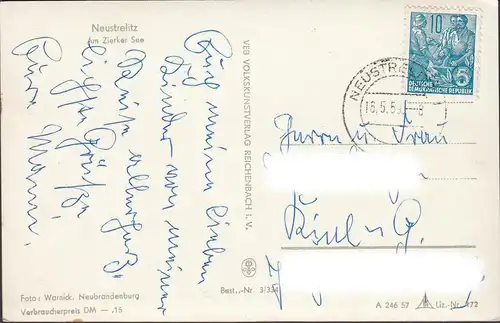 Neustrelitz
Am Zierker See
Euch meine lieben
Kinder von meiner
Reise allerherz-
lichste Grüße
Eure Mama.
VEB VOLKSKUNSTVERLAG REICHENBACH i. V.
10
5
DEUTSCHE
DEMOKRATISCHE REPUBLIK
NEUSTRE
16.5.59
8
Herrn u. Frau
Kiel
Foto: Warnick, Neubrandenburg
Verbraucherpreis DM —.15
Best.-Nr. 3/334
A 246 57
Liz.-Nr. 272